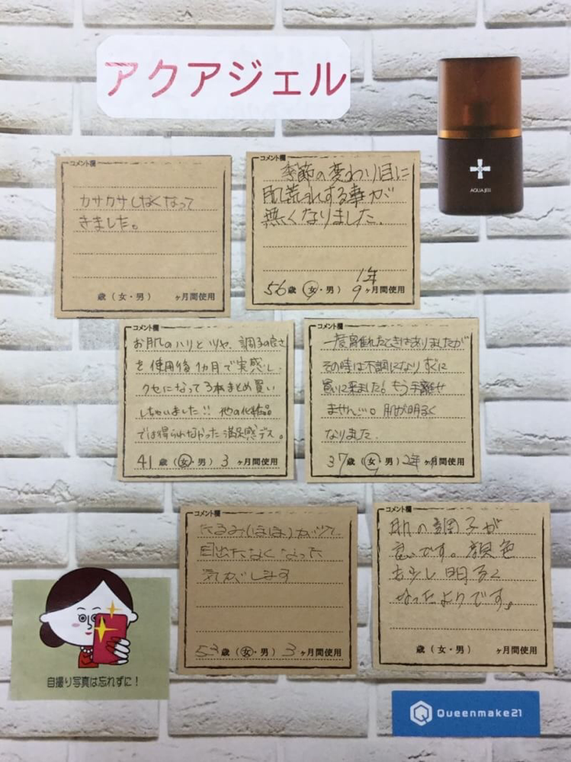 アクアジェル
AQUAGEL
コメント欄
カサカサしなくなって
きました。
歳(女・男) ヶ月間使用
コメント欄
季節の変わり目に
肌荒れする事が
無くなりました。
56歳(女・男) 1年9ヶ月間使用
コメント欄
お肌のハリとツヤ、調子の良さ
を使用後1ヵ月で実感し、
クセになって3本まとめ買い
しちゃいました!! 他の化粧品
では得られなかった満足感デス。
41歳(女・男) 3ヶ月間使用
コメント欄
一度離れたときはありましたが
その時は不調になり すぐに
買いに来ました。もう手離せ
ません…。肌が明るく
なりました。
37歳(女・男) 2年ヶ月間使用
コメント欄
たるみ(ほほ)が
目出たなくなった
気がします
53歳(女・男) 3ヶ月間使用
コメント欄
肌の調子が
良いです。顔色
も少し明るく
なったようです。
歳(女・男) ヶ月間使用
自撮り写真は忘れずに!
Queenmake21